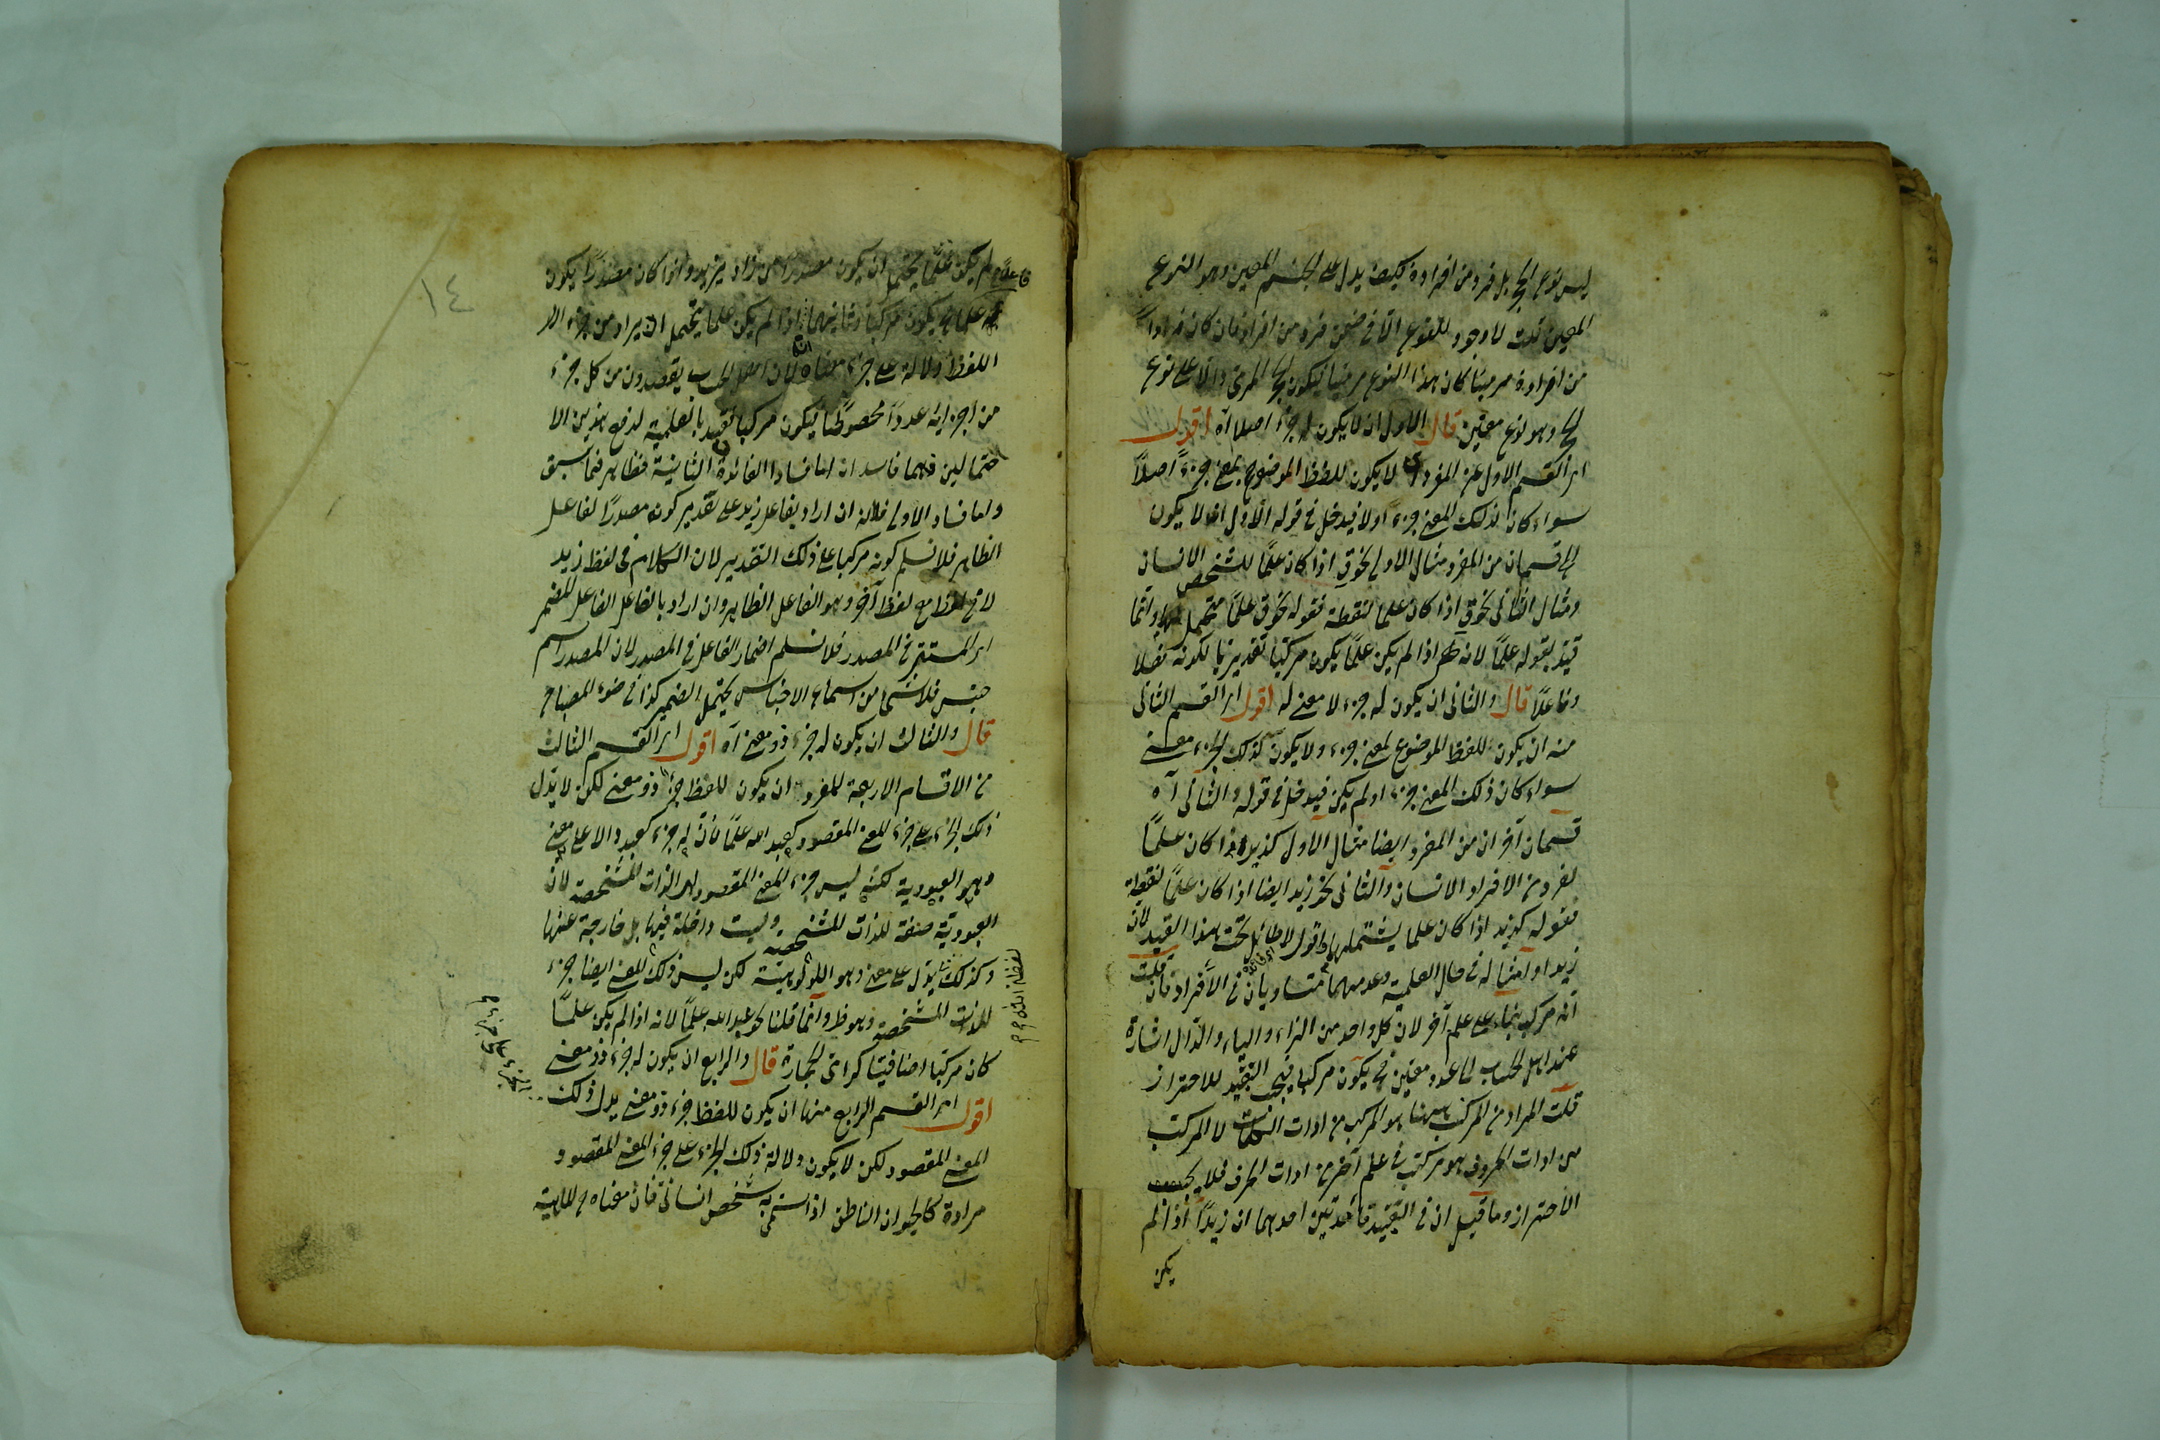 ليس نوع الحجر بل فرد من افراده فكيف يدل على الجسم المعين وهو النوع
المعين قلت لا وجود للنوع الا فى ضمن فرد من افراده فان كان فرداً
من افراده مرميا كان هذا النوع مرميا فيكون الحجر المرمى دالا على نوع
الحجر وهو نوع معين قال الاول ان لا يكون له جزء اصلا آه اقول
اى القسم الاول من المفرد ان لا يكون للفظ الموضوع لمعنى جزء اصلاً
سواء كان لذلك المعنى جزء اولا فيدخل فى قوله الاول ان لا يكون
له قسمان من المفرد مثال الاول نحو ق اذا كان علماً للشخص الانسان
ومثال الثانى نحو ق اذا كان علما لنقطة فقوله نحو ق علماً يحتملهما وانما
قيد بقوله علماً لانه اذا لم يكن علماً يكون مركبا تقديريا لكونه فعلا
وفاعلاً قال والثانى ان يكون له جزء لا معنى له اقول اى القسم الثانى
منه ان يكون للفظ الموضوع لمعنى جزء ولا يكون لذلك الجزء معنى
سواء كان ذلك المعنى جزء اولم يكن فيدخل فى قوله والثانى آه
قسمان آخران من المفرد ايضا مثال الاول كزيد اذا كان علماً
لفرد من الافراد الانسان والثانى نحو زيد ايضا اذا كان علماً لنقطة
فقوله كزيد اذا كان علما يشتملهما واقول لا طائل تحت هذا القيد لان
زيدا وامثاله فى حال العلمية وعدمهما متساويان فى الافراد فان قلت
انه مركب بناء على علم آخر لان كل واحد من الزاء والياء والدال اشارة
عند اهل الحساب الى عدد معين فح يكون مركبا فيجب التقييد للاحتراز
قلت المراد من المركب ههنا هو المركب من ادات الكلمات لا المركب
من ادات الحروف هو مركب فى علم آخر من ادات الحرف فلا يجب
الاحتراز وما قيل ان فى التقييد فائدتين احدهما ان زيداً اذا لم
يكن
١٤
يكن علماً يحتمل ان يكون مصدرا من زاد يزيد واذا كان مصدراً يكون
علما يكون مركبا وثانيهما اذا لم يكن علما يحتمل ان يراد من جزء
اللفظ دلالة على جزء معناه لان اهل الحساب يقصدون من كل جزء
من اجزائه عدداً مخصوصا فيكون مركبا فقيد بالعلمية لدفع هذين الا
حتمالين فهما فاسدان اما فساد الفائدة الثانية فظاهر فما سبق
واما فساد الاولى فلانه ان اراد بفاعل زيد على تقدير كونه مصدرًا لفاعل
الظاهر فلا نسلم كونه مركبا على ذلك التقدير لان الكلام فى لفظ زيد
لا فى لفظ مع لفظ آخر وهو الفاعل الظاهر وان اراد بالفاعل الفاعل المضمر
اى المستتر فى المصدر فلا نسلم اضمار الفاعل فى المصدر لان المصدر اسم
جنس فلا شئ من اسماء الاجناس يحتمل الضمير كذا فى ضوء المصباح
قال والثالث ان يكون له جزء ذو معنى آه اقول اى القسم الثالث
من الاقسام الاربعة للمفرد ان يكون للفظ جزء ذو معنى لكن لا يدل
ذلك الجزء على جزء المعنى المقصود كعبد الله علماً فان له جزء كعبد دالا على معنى
وهو العبودية لكنه ليس جزء المعنى المقصود اى الذات المشخصة لان
العبودية صفة للذات المشخصة وليست داخلة فيها بل خارجة عنها
وكذلك يدل على معنى وهو الالوهية لكن ليس ذلك المعنى ايضا جزء
للذات المشخصة وهو ظ وانما قلنا نحو عبد الله علماً لانه اذا لم يكن علماً
كان مركبا اضافيا كرامى الحجارة قال والرابع ان يكون له جزء ذو معنى
اقول اى القسم الرابع منها ان يكون للفظ جزء ذو معنى يدل ذلك
المعنى المقصود لكن لا يكون دلالة ذلك الجزء على جزء المعنى المقصود
مرادة كالحيوان الناطق اذا سمى به شخص انسانى فان معناه ح الماهية
لفظة الله
الجزء على جزء